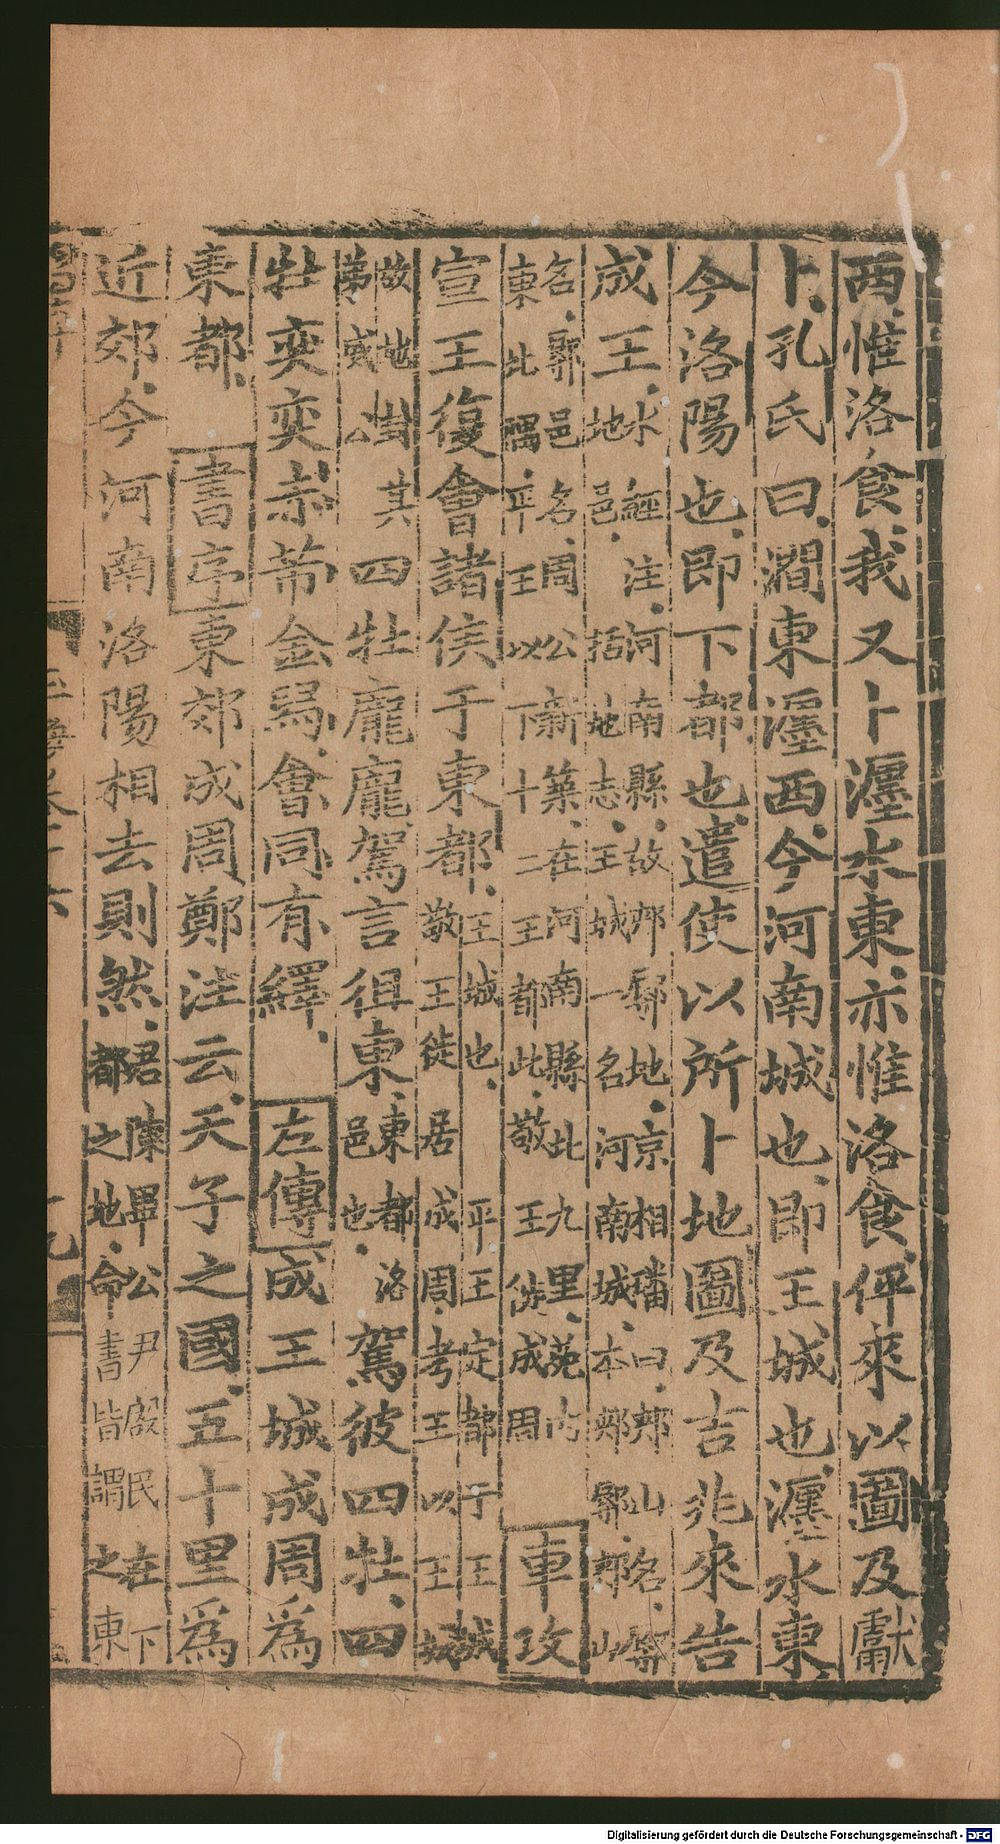 西惟洛食我又卜瀍水東亦惟洛食伻來以圖及獻
卜孔氏曰澗東瀍西今河南城也即王城也瀍水東
今洛陽也即下都也遣使以所卜地圖及吉兆來告
成王水經注河南縣故郟鄏地京相璠曰郟山名鄏
地邑括地志王城一名河南城本郟鄏郟山
名鄏邑名周公新築在河南縣北九里苑內
東北隅平王以下十二王都此敬王徙成周
車攻
宣王復會諸侯于東都王城也平王定都于王城
敬王徙居成周考王以王城
故地封其
弟威公
四牡龐龐駕言徂東東都洛
邑也
駕彼四牡四
牡奕奕赤芾金舄會同有繹左傳成王城成周為
東都書序東郊成周鄭注云天子之國五十里為
近郊今河南洛陽相去則然君陳畢公尹殷民在下
都之地命書皆謂之東
Digitalisierung gefördert durch die Deutsche Forschungsgemeinschaft - DFG